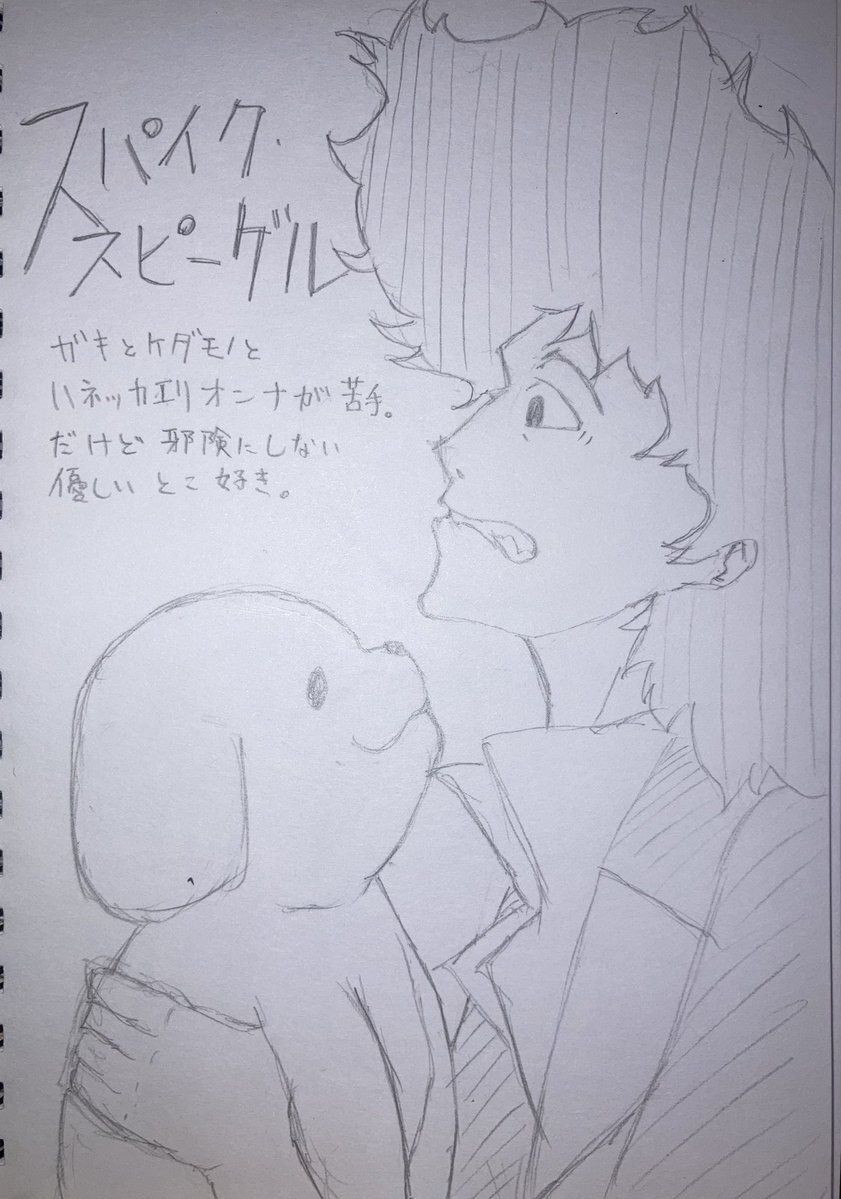 スパイク・
スピーゲル
ガキとケダモノと
ハネッカエリオンナが苦手。
だけど邪険にしない
優しいとこ好き。